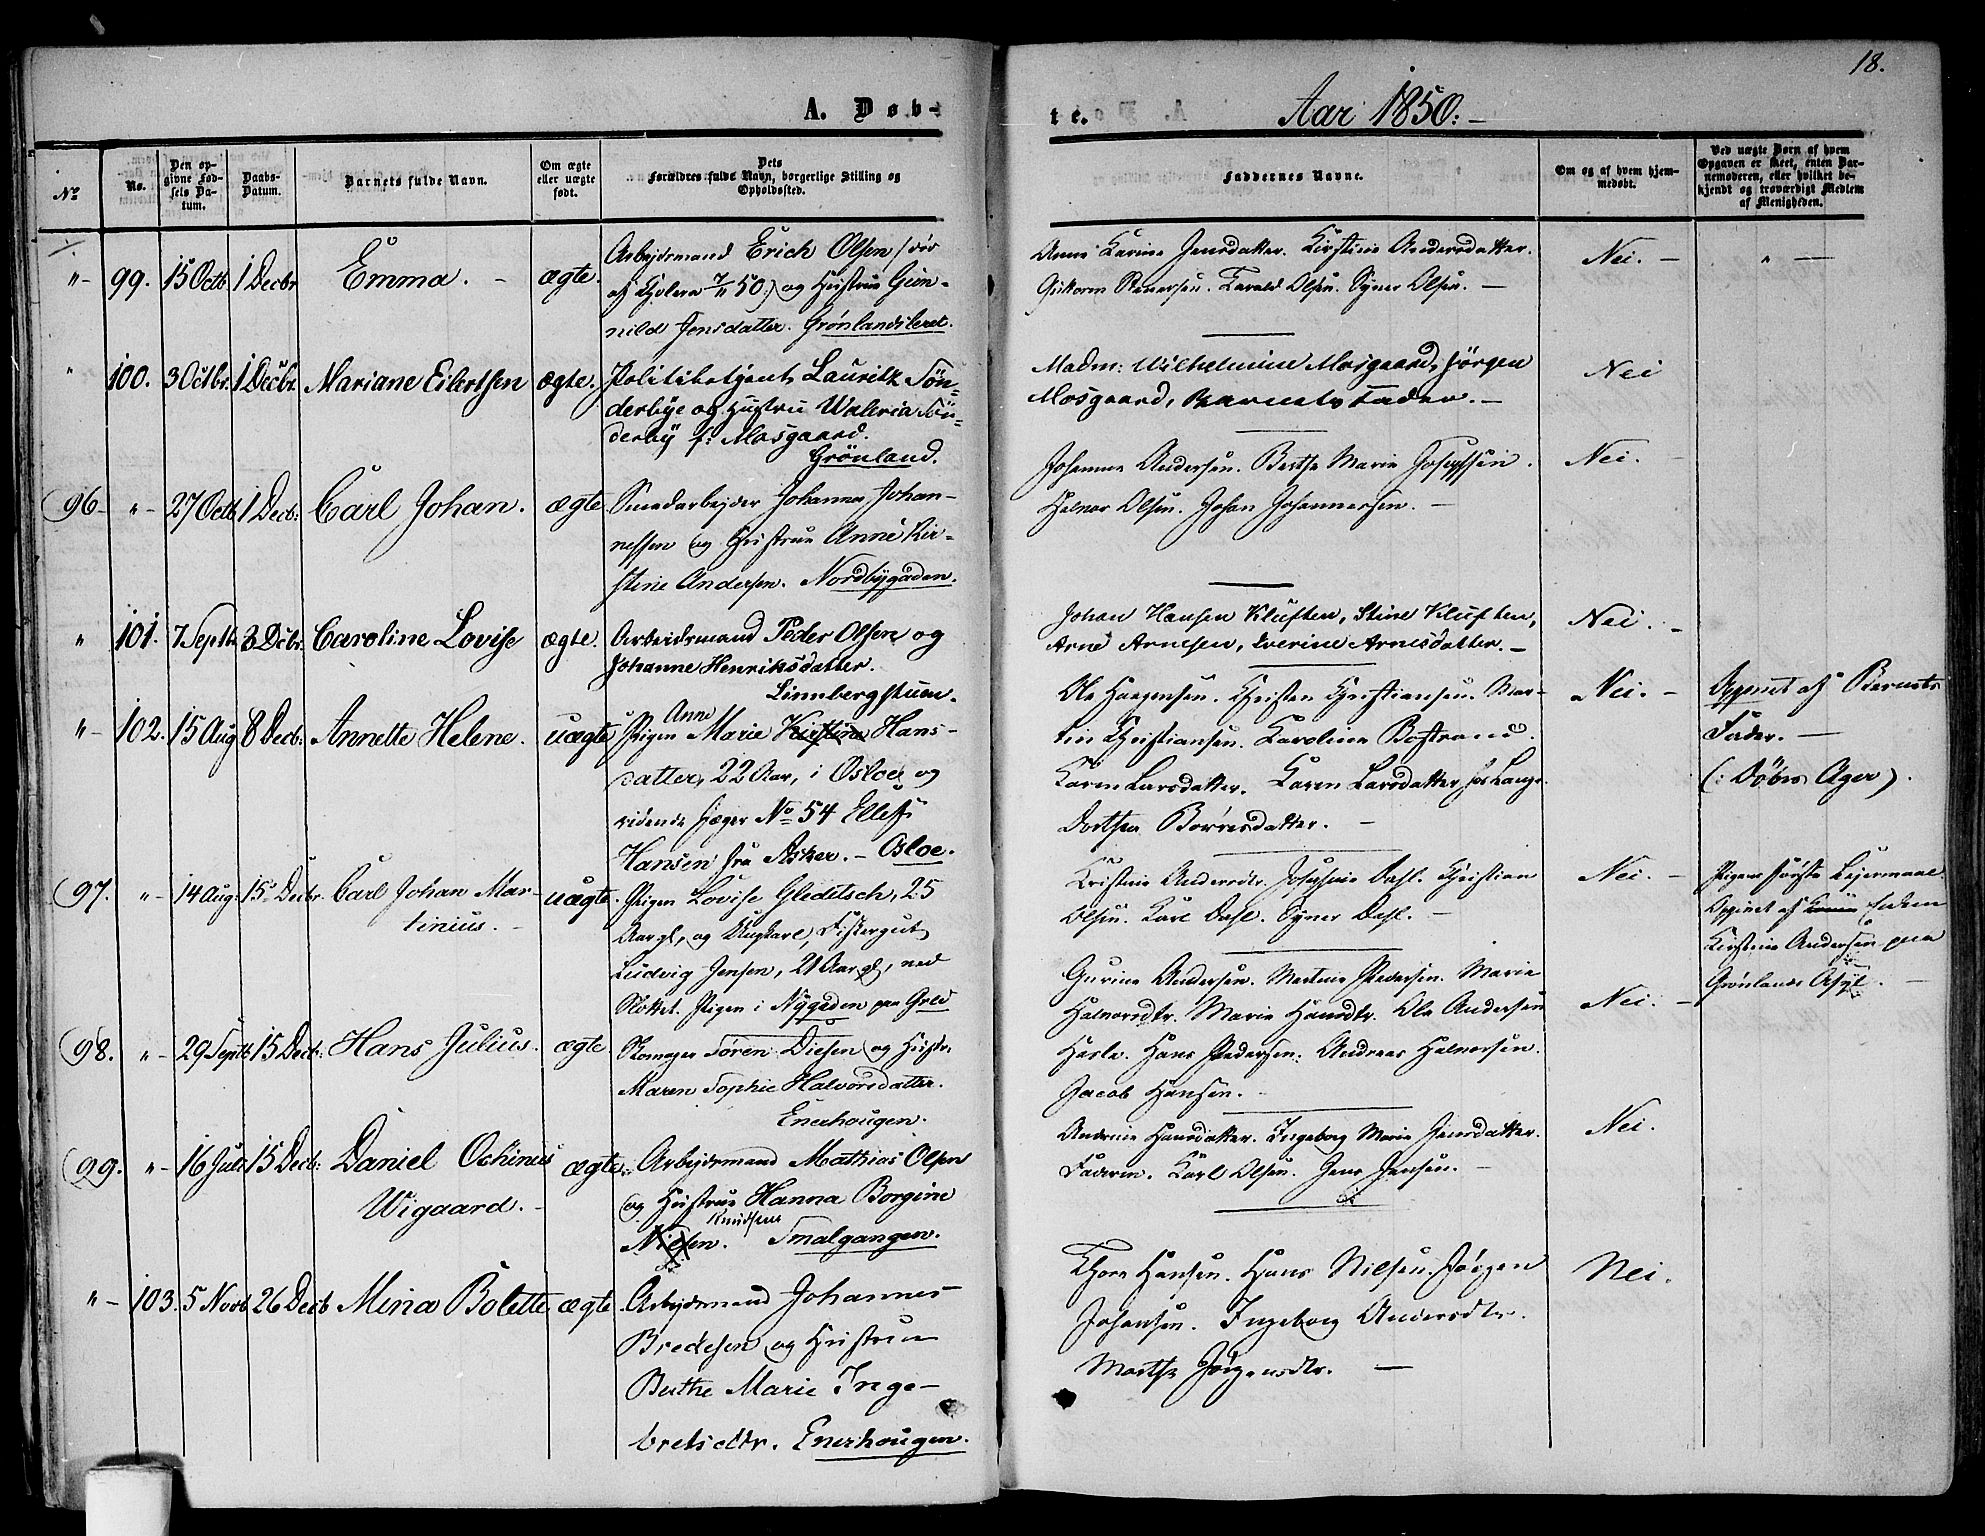 18.
A. Døb-
te. Aar 1850.
No
No.
Den op-
givne Fød-
sels Da-
tum.
Daabs-
Datum.
Barnets fulde Navn.
Om ægte
eller uægte
født.
Dets
Forældres fulde Navn, borgerlige Stilling og
Opholdssted.
Faddernes Navne.
Om og af hvem hjem-
medøbt.
Ved uægte Børn af hvem
Opgaven er skeet, enten Bar-
nemoderen, eller hvilket be-
kjendt og troværdigt Medlem
af Menigheden.
"- 99. 15 Octb 1 Decbr Emma. - ægte.
Arbejdsmand Erich Olsen (død
af Cholera 7/11 50.) og Hustrue Gun-
nild Jensdatter. Grønlandsleret.
Anne Karine Jensdatter. Kirstine Andersdatter.
Guttorm Stenersen. Tarald Olsen. Syver Olsen. -
Nei. - " -
" 100. 3 Octbr. 1 Decbr. Mariane Eilertsen ægte.
Politibetjent Lauritz Søn-
derbye og Hustru Waleria Søn-
derby f: Mosgaard.
Grönland.
Madm: Wilhelmine Mosgaard, Jørgen
Mosgaard, Barnets Fader. -
Nei
96 - "- 27 Octb 1 Decb: Carl Johan. ægte
Smedarbejder Johannes Johan-
nessen og Hustrue Anne Kir-
stine Andersen. Nordbygaden.
Johanne Andersen. Berthe Marie Josephsen.
Halvor Olsen. Johan Johannessen. -
Nei.
" 101. 7 Septb. 3 Dcbr. Caroline Lovise ægte.
Arbeidsmand Peder Olsen og
Johanne Henriksdatter.
Linnbergstuen.
Johan Hansen Kluften, Stine Kluften,
Arne Arnesen, Iverine Arnesdatter. -
Nei. -
"- 102. 15 Aug 8 Decb: Annette Helene. uægte
Anne
Pigen Marie Kirstine Hans-
datter, 22 Aar, i Osloe og
ridende Jæger No 54 Ellef
Hansen fra Asker. - Osloe.
Ole Haagensen. Christen Christiansen. Mar-
tin Christiansen. Karoline Bostrand.
Karen Larsdatter. Karen Larsdatter
Dorthea Børresdatter. -
Nei. -
Opgivet af Barnets
Fader. -
(: Döbes Ager).
97. "- 14 Aug: 15 Decbr. Carl Johan Mar-
tinius. - uægte.
Pigen Lovise Gleditsch, 25
Aar gl, og Ungkarl, Fiskergut
Ludvig Jensen, 21 Aar gl, ved
Slottet. Pigen i Nygaden
Kristine Andersdtr. Josephine Dahl. Christian
Olsen. Karl Dahl. Syver Dahl. -
Nei. -
Pigens første Lejermaal.
Opgivet af
Kirstine Andersen paa
Grønlands Asyl. -
98. "- 29 Septb 15 Decb: Hans Julius. ægte
Skomager Søren Diesen og Hustr.
Maren Sophie Halvorsdatter.
Enerhougen.
Gurine Andersen. Martine Pedersen. Marie
Halvorsdtr. Marie Hansdtr. Ole Andersen
Hasle. Hans Pedersen. Andreas Halvorsen.
Jacob Hansen. -
Nei. -
99. "- 16 Juli 15 Decb: Daniel Ochinus
Wigaard. - ægte.
Arbejdsmand Mathias Olsen
og Hustrue Hanna Borgine
Knudsen
Nielsen. Smalgangen.
Andrine Hansdatter. Ingeborg Marie Jensdatter.
Faderen. Karl Olsen. Jens Jensen. -
Nei.
"- 103. 5 Novb 26 Decb Mina Bolette ægte.
Arbejdsmand Johannes
Bredesen og Hustrue
Berthe Marie Inge-
bretsdtr. Enerhougen.
Thore Hansen. Hans Nilsen. Jørgen
Johansen. Ingeborg Andersdtr.
Marthe Jørgensdtr. -
Nei.